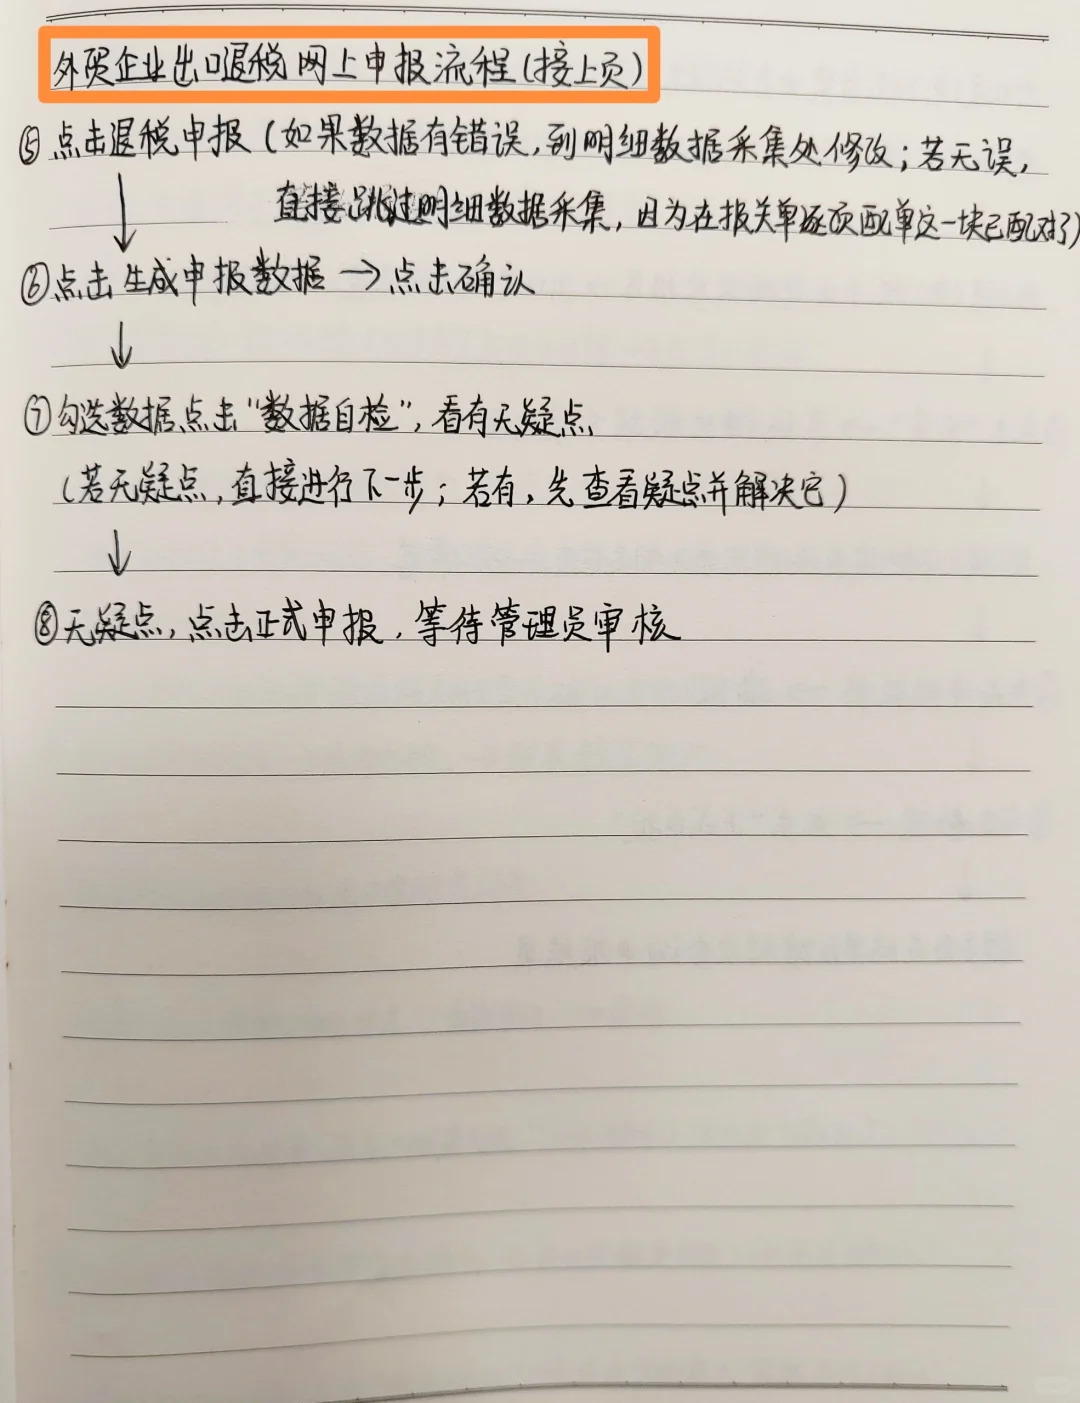 外贸企业出口退税网上申报流程(接上页)
⑤点击退税申报(如果数据有错误,到明细数据采集处修改;若无误,
直接跳过明细数据采集,因为在报关单逐项配单这一块已配对了)
↓
⑥点击生成申报数据→点击确认
↓
⑦勾选数据点击“数据自检”,看有无疑点
(若无疑点,直接进行下一步;若有,先查看疑点并解决它)
↓
⑧无疑点,点击正式申报,等待管理员审核